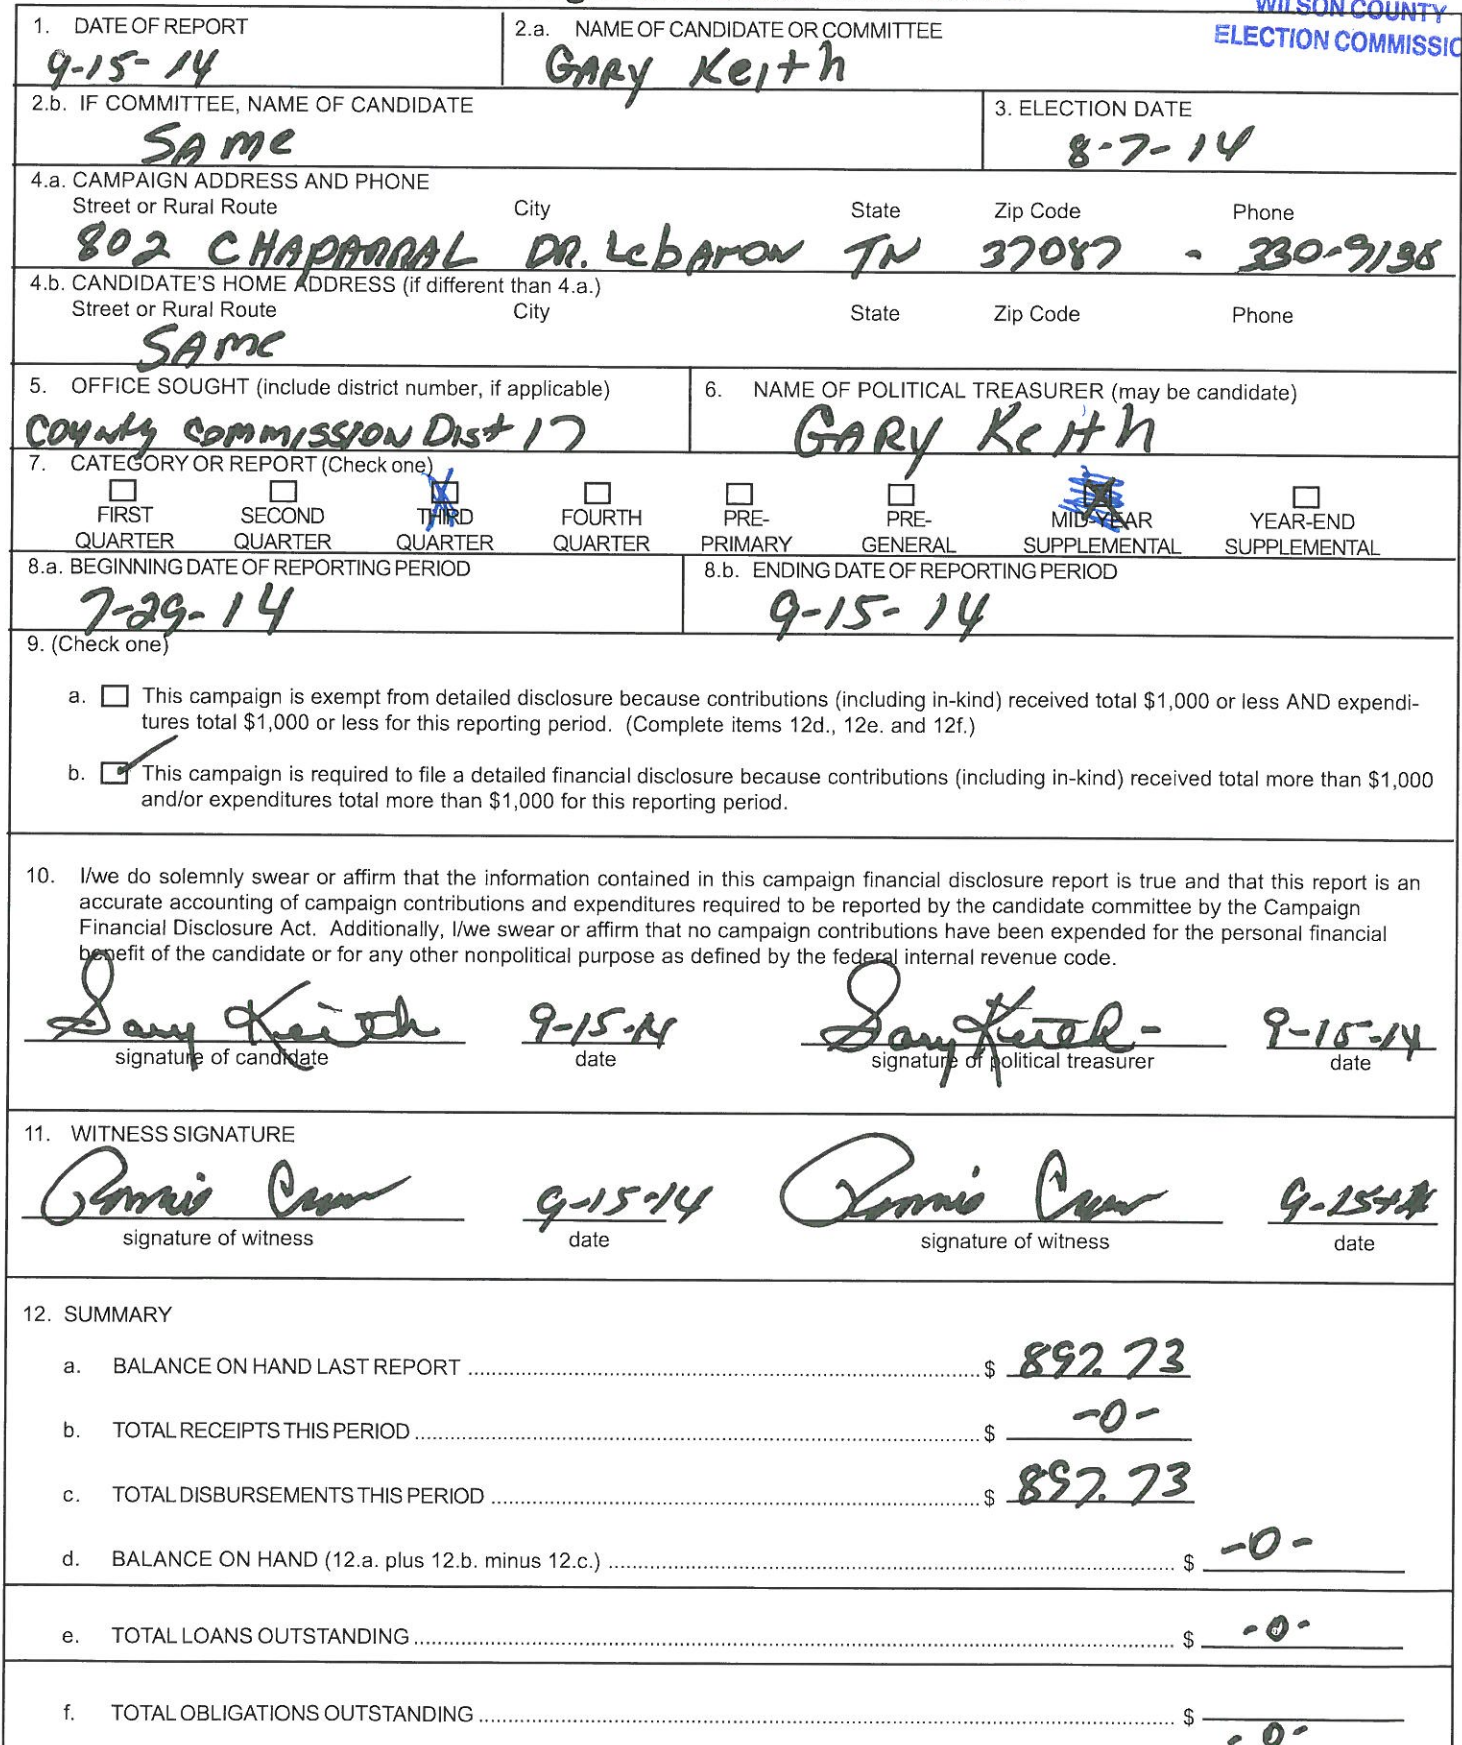 WILSON COUNTY
ELECTION COMMISSIO
1. DATE OF REPORT
9-15-14
2.a. NAME OF CANDIDATE OR COMMITTEE
GARY Keith
2.b. IF COMMITTEE, NAME OF CANDIDATE
SAme
3. ELECTION DATE
8-7-14
4.a. CAMPAIGN ADDRESS AND PHONE
Street or Rural Route City State Zip Code Phone
802 CHAPARRAL DR. LebAnon TN 37087 -
4.b. CANDIDATE'S HOME ADDRESS (if different than 4.a.)
Street or Rural Route City State Zip Code Phone
SAme
5. OFFICE SOUGHT (include district number, if applicable)
County Commission Dist 17
6. NAME OF POLITICAL TREASURER (may be candidate)
GARY Keith
7. CATEGORY OR REPORT (Check one)
FIRST SECOND THIRD FOURTH PRE- PRE- MID-YEAR YEAR-END
QUARTER QUARTER QUARTER QUARTER PRIMARY GENERAL SUPPLEMENTAL SUPPLEMENTAL
8.a. BEGINNING DATE OF REPORTING PERIOD
7-29-14
8.b. ENDING DATE OF REPORTING PERIOD
9-15-14
9. (Check one)
a. This campaign is exempt from detailed disclosure because contributions (including in-kind) received total $1,000 or less AND expendi-
tures total $1,000 or less for this reporting period. (Complete items 12d., 12e. and 12f.)
b. This campaign is required to file a detailed financial disclosure because contributions (including in-kind) received total more than $1,000
and/or expenditures total more than $1,000 for this reporting period.
10. I/we do solemnly swear or affirm that the information contained in this campaign financial disclosure report is true and that this report is an
accurate accounting of campaign contributions and expenditures required to be reported by the candidate committee by the Campaign
Financial Disclosure Act. Additionally, I/we swear or affirm that no campaign contributions have been expended for the personal financial
benefit of the candidate or for any other nonpolitical purpose as defined by the federal internal revenue code.
Gary Keith 9-15-14 Gary Keith 9-15-14
signature of candidate date signature of political treasurer date
11. WITNESS SIGNATURE
9-15-14 9-15-14
signature of witness date signature of witness date
12. SUMMARY
a. BALANCE ON HAND LAST REPORT $ 897.73
b. TOTAL RECEIPTS THIS PERIOD $ -0-
c. TOTAL DISBURSEMENTS THIS PERIOD $ 897.73
d. BALANCE ON HAND (12.a. plus 12.b. minus 12.c.) $ -0-
e. TOTAL LOANS OUTSTANDING $ -0-
f. TOTAL OBLIGATIONS OUTSTANDING $ -0-